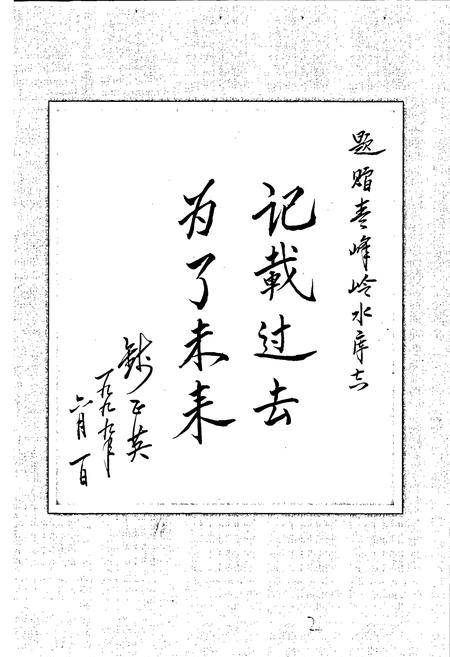 题赠青峰岭水库志
记载过去
为了未来
钱正英
一九九九年
六月一日
2